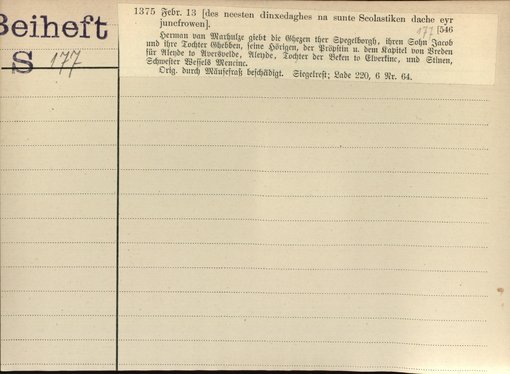 Beiheft
S 177
1375 Febr. 13 [des neesten dinxedaghes na sunte Scolastiken dache eyr
juncfrowen].
177 [546
Herman van Marhulze giebt die Ghezen ther Spegelborgh, ihren Sohn Jacob
und ihre Tochter Ghebben, seine Hörigen, der Pröpstin u. dem Kapitel von Vreden
für Aleyde to Aversvelde, Aleyde, Tochter der Beken to Elverkinc, und Stinen,
Schwester Wessels Meneinc.
Orig. durch Mäusefraß beschädigt. Siegelrest; Lade 220, 6 Nr. 64.